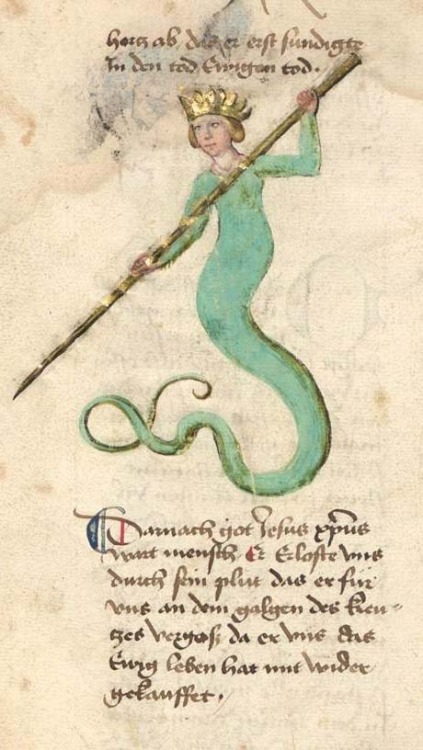 hertz ab das er erst sundigte
In den tod Ewigen tod.
Darnach got Jesus xp̄us
wart mensch Er Erloste vns
durch sein plut das er fur
vns an dem galgen des kreu-
tzes vergoss da er vns das
Ewig leben hat mit wider
gekauffet.